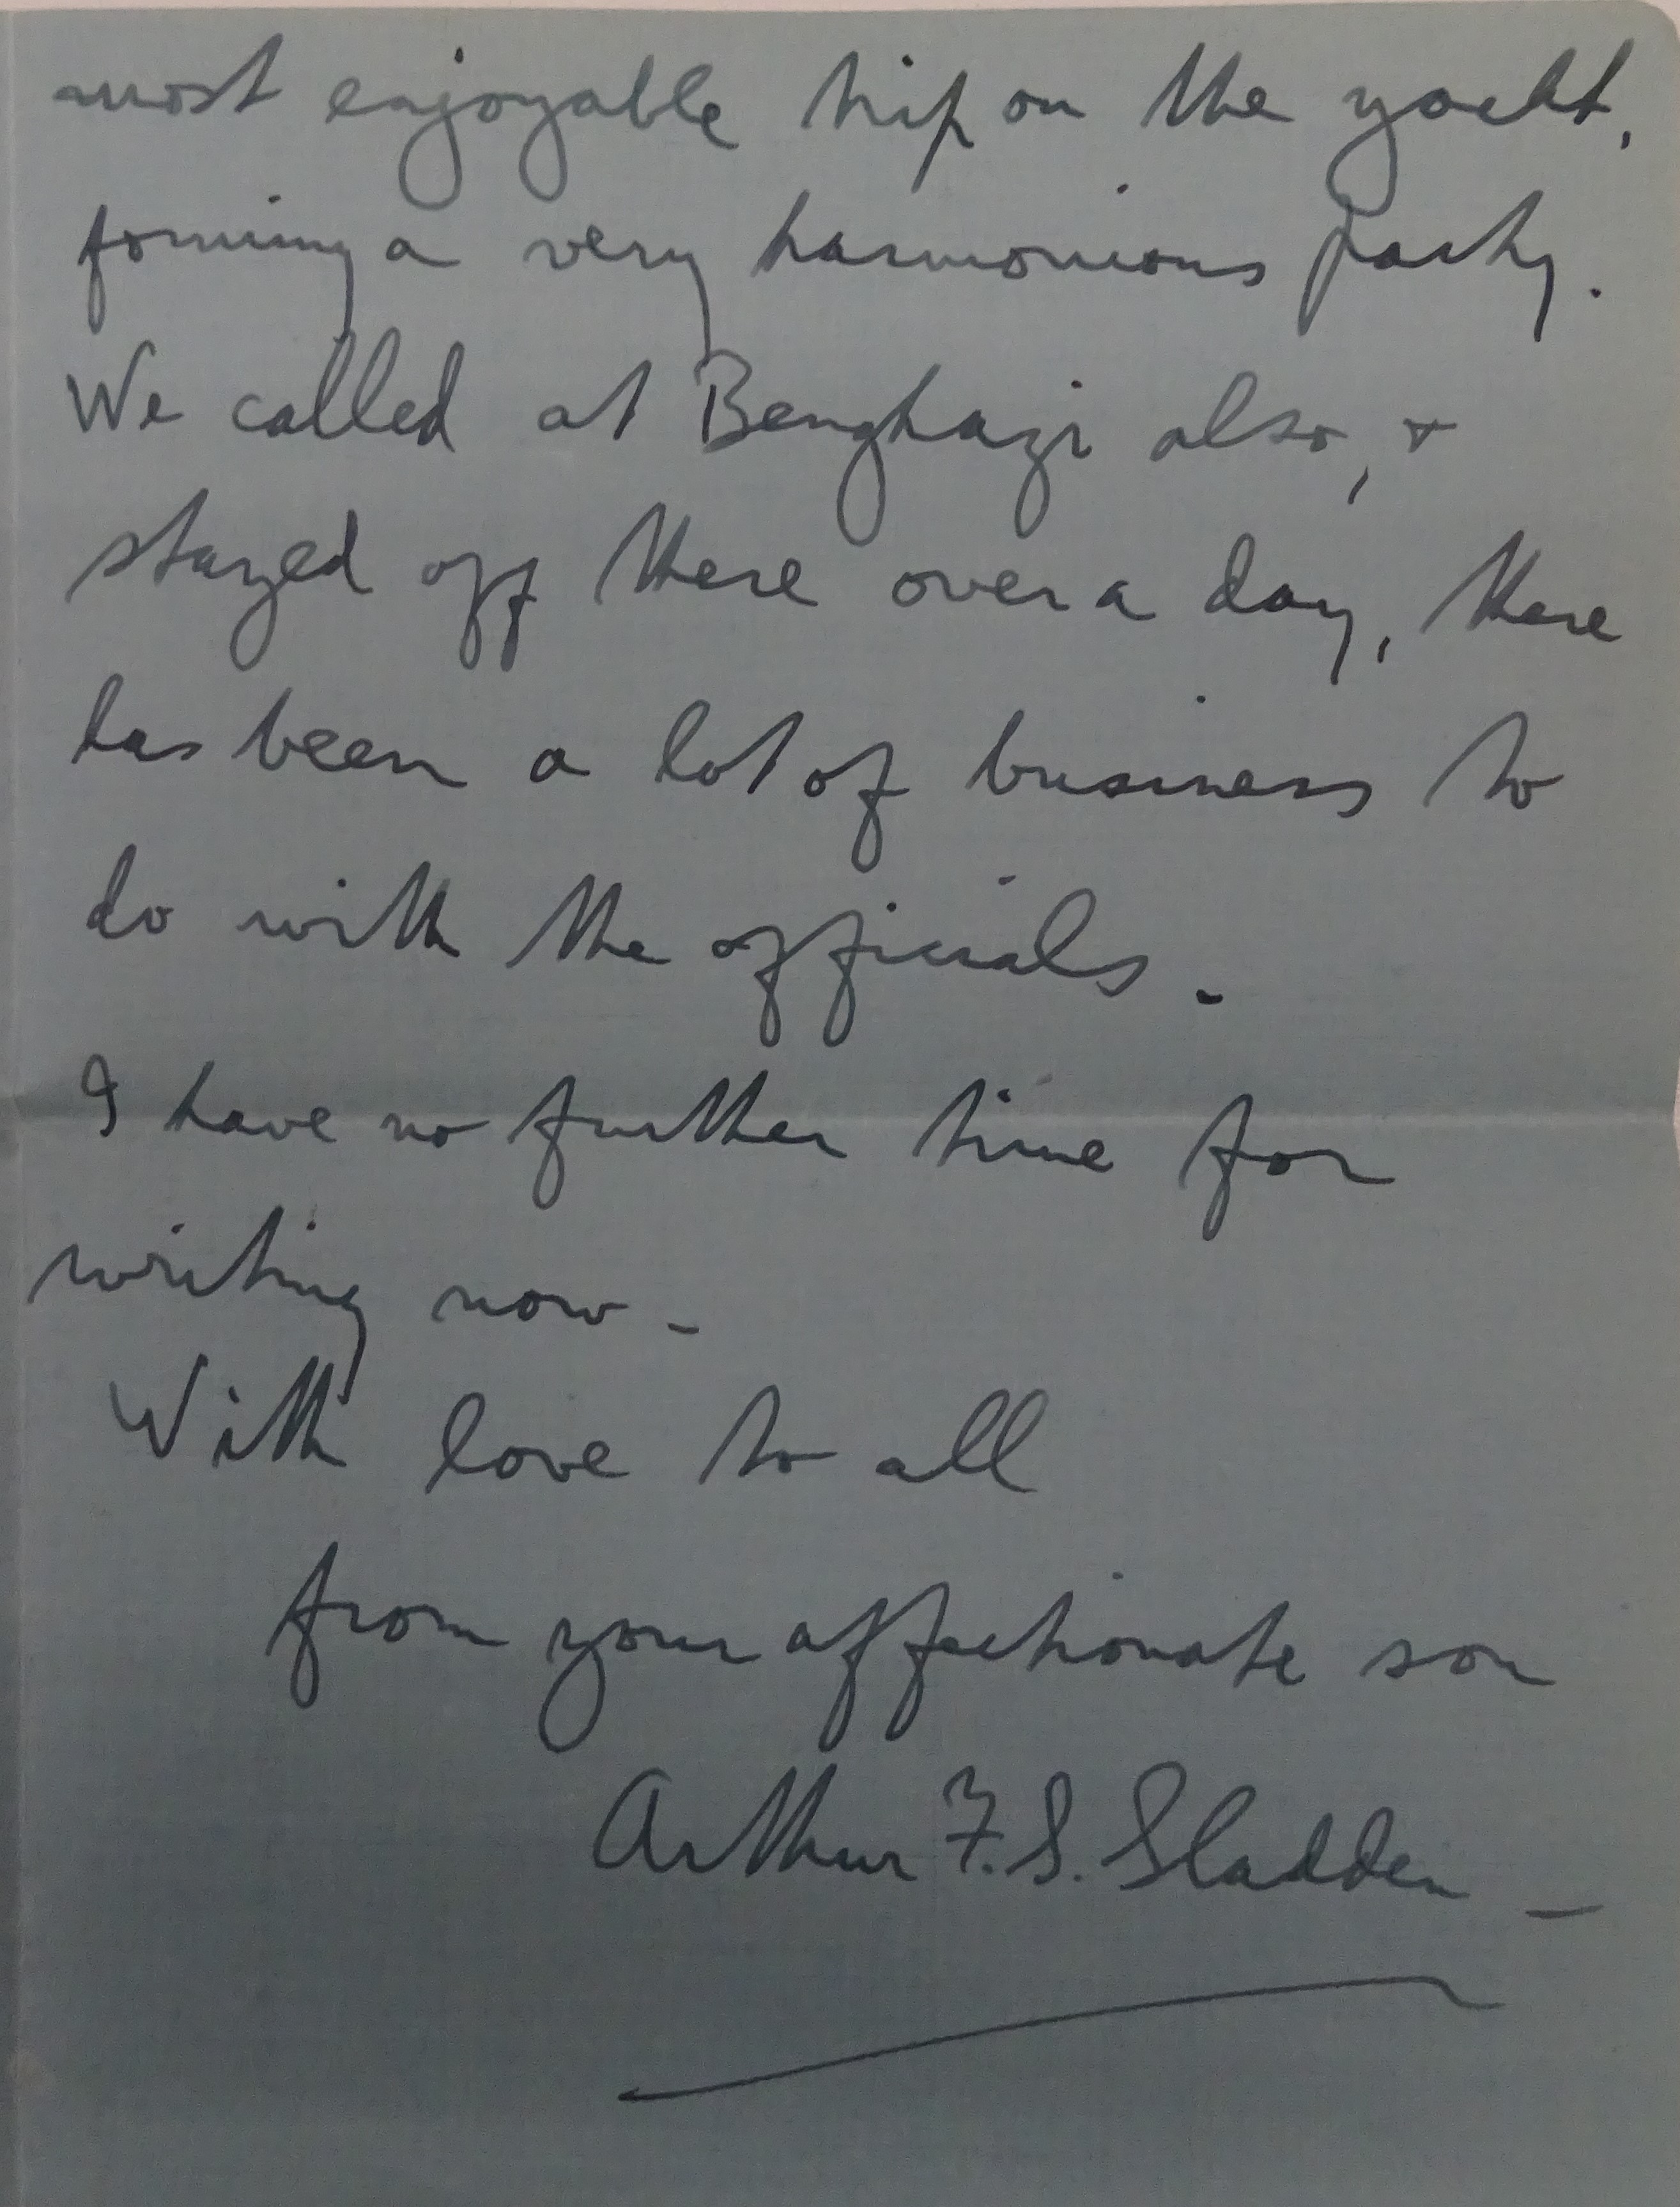 most enjoyable trip on the yacht,
forming a very harmonious party.
We called at Benghazi also, &
stayed off there over a day, there
has been a lot of business to
do with the officials.
I have no further time for
writing now -
With love to all
from your affectionate son
Arthur F. S. Sladden -